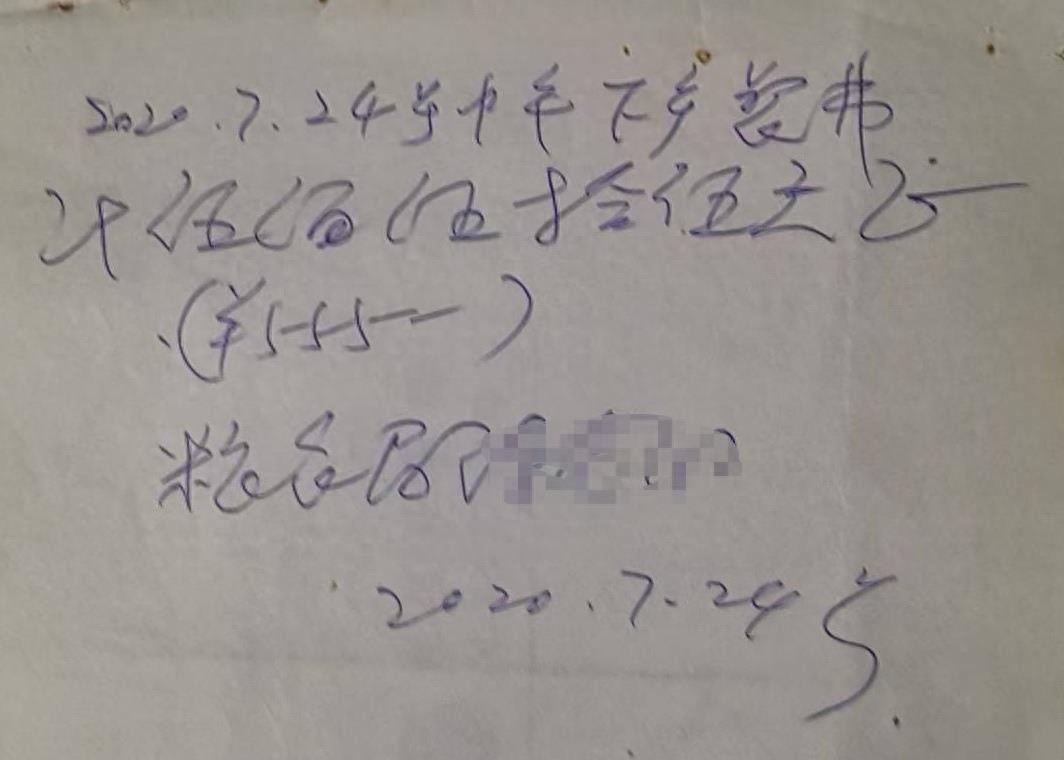 2020.7.24号中午下乡餐费
计伍佰伍拾伍元正
(¥555一)
粮食部
2020.7.24号